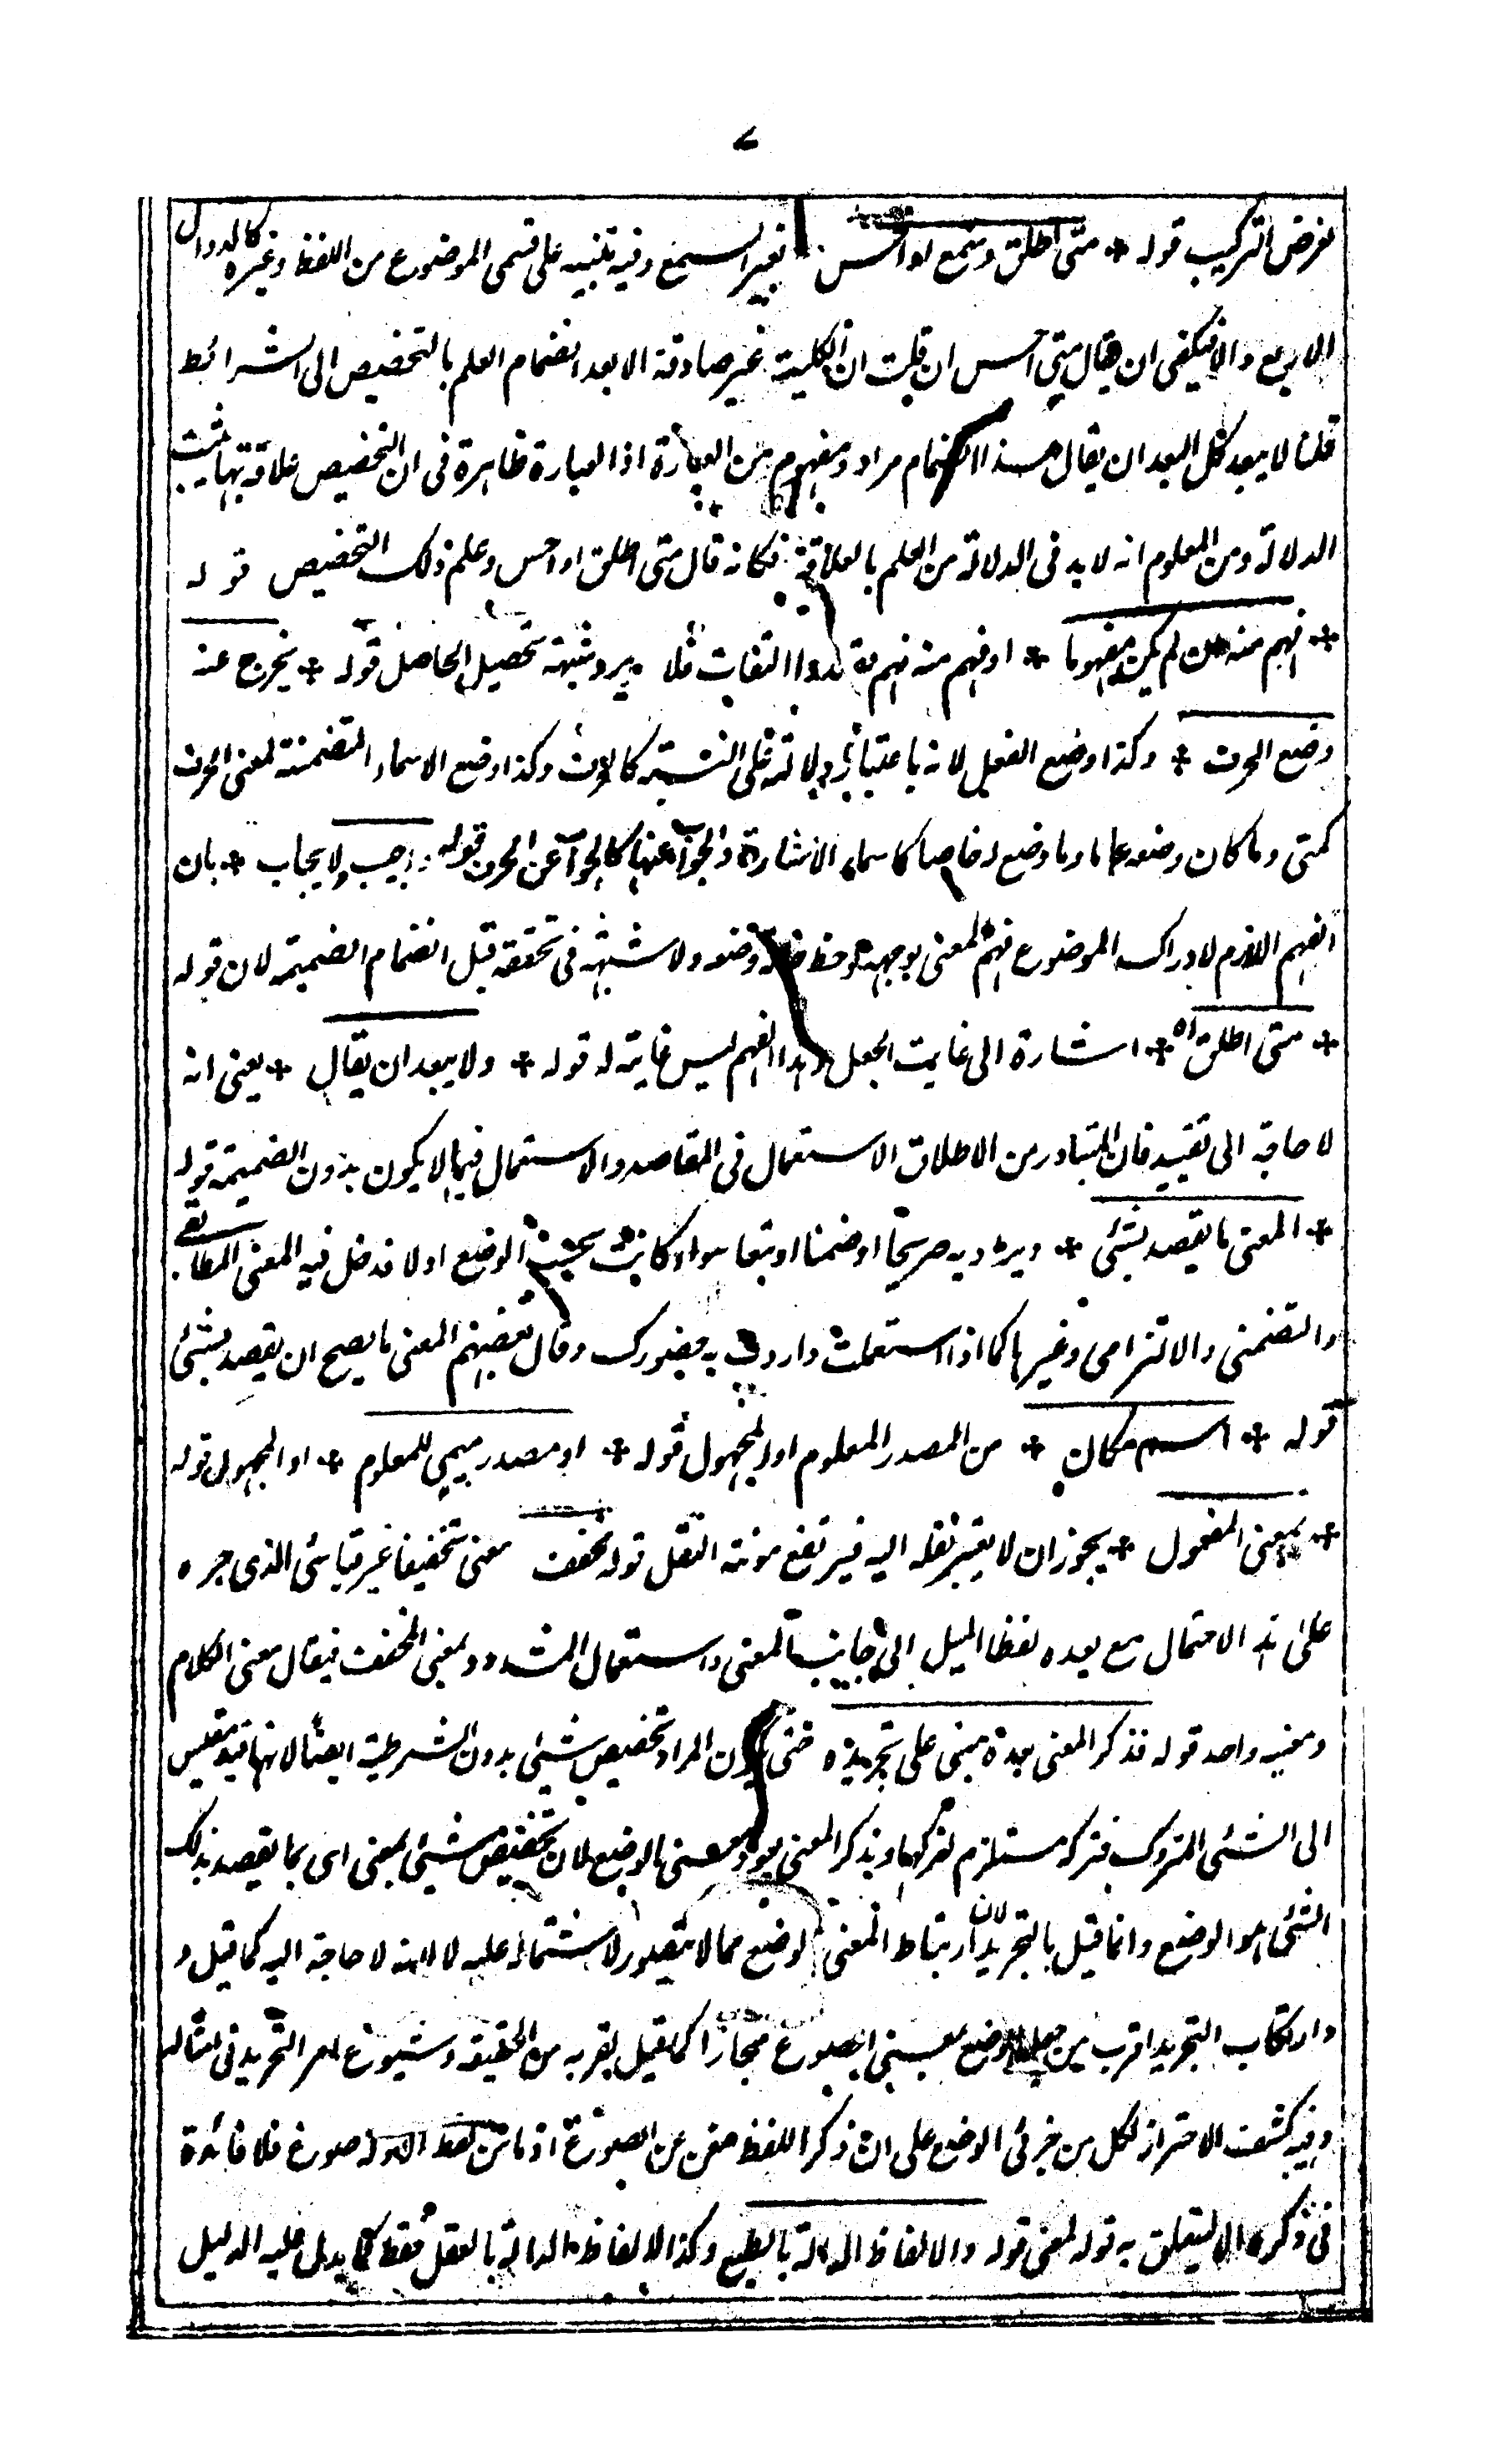 ٧
لغرض التركيب قوله * متى اطلق وسمع او احس تغيير السمع وفيه تنبيه على قسمى الموضوع من اللفظ وغيره كالدوال
الاربع والا فيكفى ان يقال متى احس ان قلت ان الكلية غير صادقة الا بعد انضمام العلم بالتخصيص الى الشرائط
قلنا لا يبعد كل البعد ان يقال هذا الانضمام مراد ومفهوم من العبارة اذ العبارة ظاهرة فى ان التخصيص علاقة بها يثبت
الدلالة ومن المعلوم انه لا بد فى الدلالة من العلم بالعلاقة فكانه قال متى اطلق او احس وعلم ذلك التخصيص قوله
* فهم منه من لم يكن مفهوما * او فهم منه فهم مرة التفات فلا يرد شبهة تحصيل الحاصل قوله * يخرج عنه
وضع الحرف * وكذا وضع الفعل لانه باعتبار دلالته على النسبة كالحرف وكذا وضع الاسماء المتضمنة لمعنى الحرف
كمتى وما كان وضعه عاما وما وضع له خاصا كاسماء الاشارة والجواب عنها كالجواب عن الحرف قوله اجيب ولا يجاب * بان
الفهم اللازم لادراك الموضوع فهم المعنى بوجه لوحظ وضعه ولا شبهة فى تحققه قبل انضمام الضميمة لان قوله
* متى اطلق اه * اشارة الى غاية الجعل وهذا الفهم ليس غاية له قوله * ولا يبعد ان يقال * يعنى انه
لا حاجة الى تقييد فان المتبادر من الاطلاق الاستعمال فى المقاصد والاستعمال فيها لا يكون بدون الضميمة قوله
* المعنى ما يقصد بشئ * ويراد به صريحا او ضمنا او تبعا سواء كانت بحسب الوضع او لا فدخل فيه المعنى المطابقى
والتضمنى والالتزامى وغيرها كما اذا استعملت واردت به وقال بعضهم المعنى ما يصح ان يقصد بشئ
قوله * اسم مكان * من المصدر المعلوم او المجهول قوله * او مصدر ميمى للمعلوم * او المجهول قوله
* بمعنى المفعول * يجوز ان لا يعتبر نقله اليه فيرتفع مؤنة النقل قوله مخفف معنى تخفيفا غير قياسى الذى جره
على هذا الاحتمال مع بعده لفظا الميل الى جانب المعنى واستعمال المشدد وبمعنى المخفف فيقال معنى الكلام
ومعنيه واحد قوله فذكر المعنى بعده مبنى على تجريده حتى يكون المراد تخصيص شيئ بدون الشرطية ايضا لانها قيد مقيس
الى الشئ المتروك فتركه مستلزم لتركها وبذكر المعنى يعود معنى الوضع لان تخصيص شيئ بمعنى اى بما يقصد بذلك
الشئ هو الوضع وانما قيل بالتجريد لان ارتباط المعنى لوضع مما لا يتصور لاشتماله عليه لا لانه لا حاجة اليه كما قيل و
وارتكاب التجريد اقرب من جعل الوضع بمعنى الصوغ مجازا كما قيل لقربه من الحقيقة وشيوع امر التجريد فى امثاله
وفيه كشف الاحتراز لكل من جزئى الوضع على ان ذكر اللفظ مغن عن الصوغ اذ ما من لفظ الا وله صوغ فلا فائدة
فى ذكره الا ليتعلق به قوله لمعنى قوله والالفاظ الدالة بالطبع وكذا الالفاظ الدالة بالعقل فقط كما يدل عليه الدليل